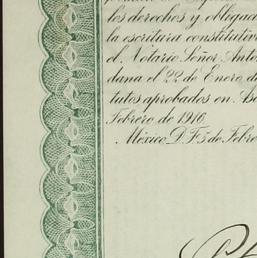 los derechos y obligac
la escritura constitutiv
el Notario Señor Anto
dana el 22 de Enero d
tutos aprobados en As
Febrero de 1916
México, D.F. 5 de Febre